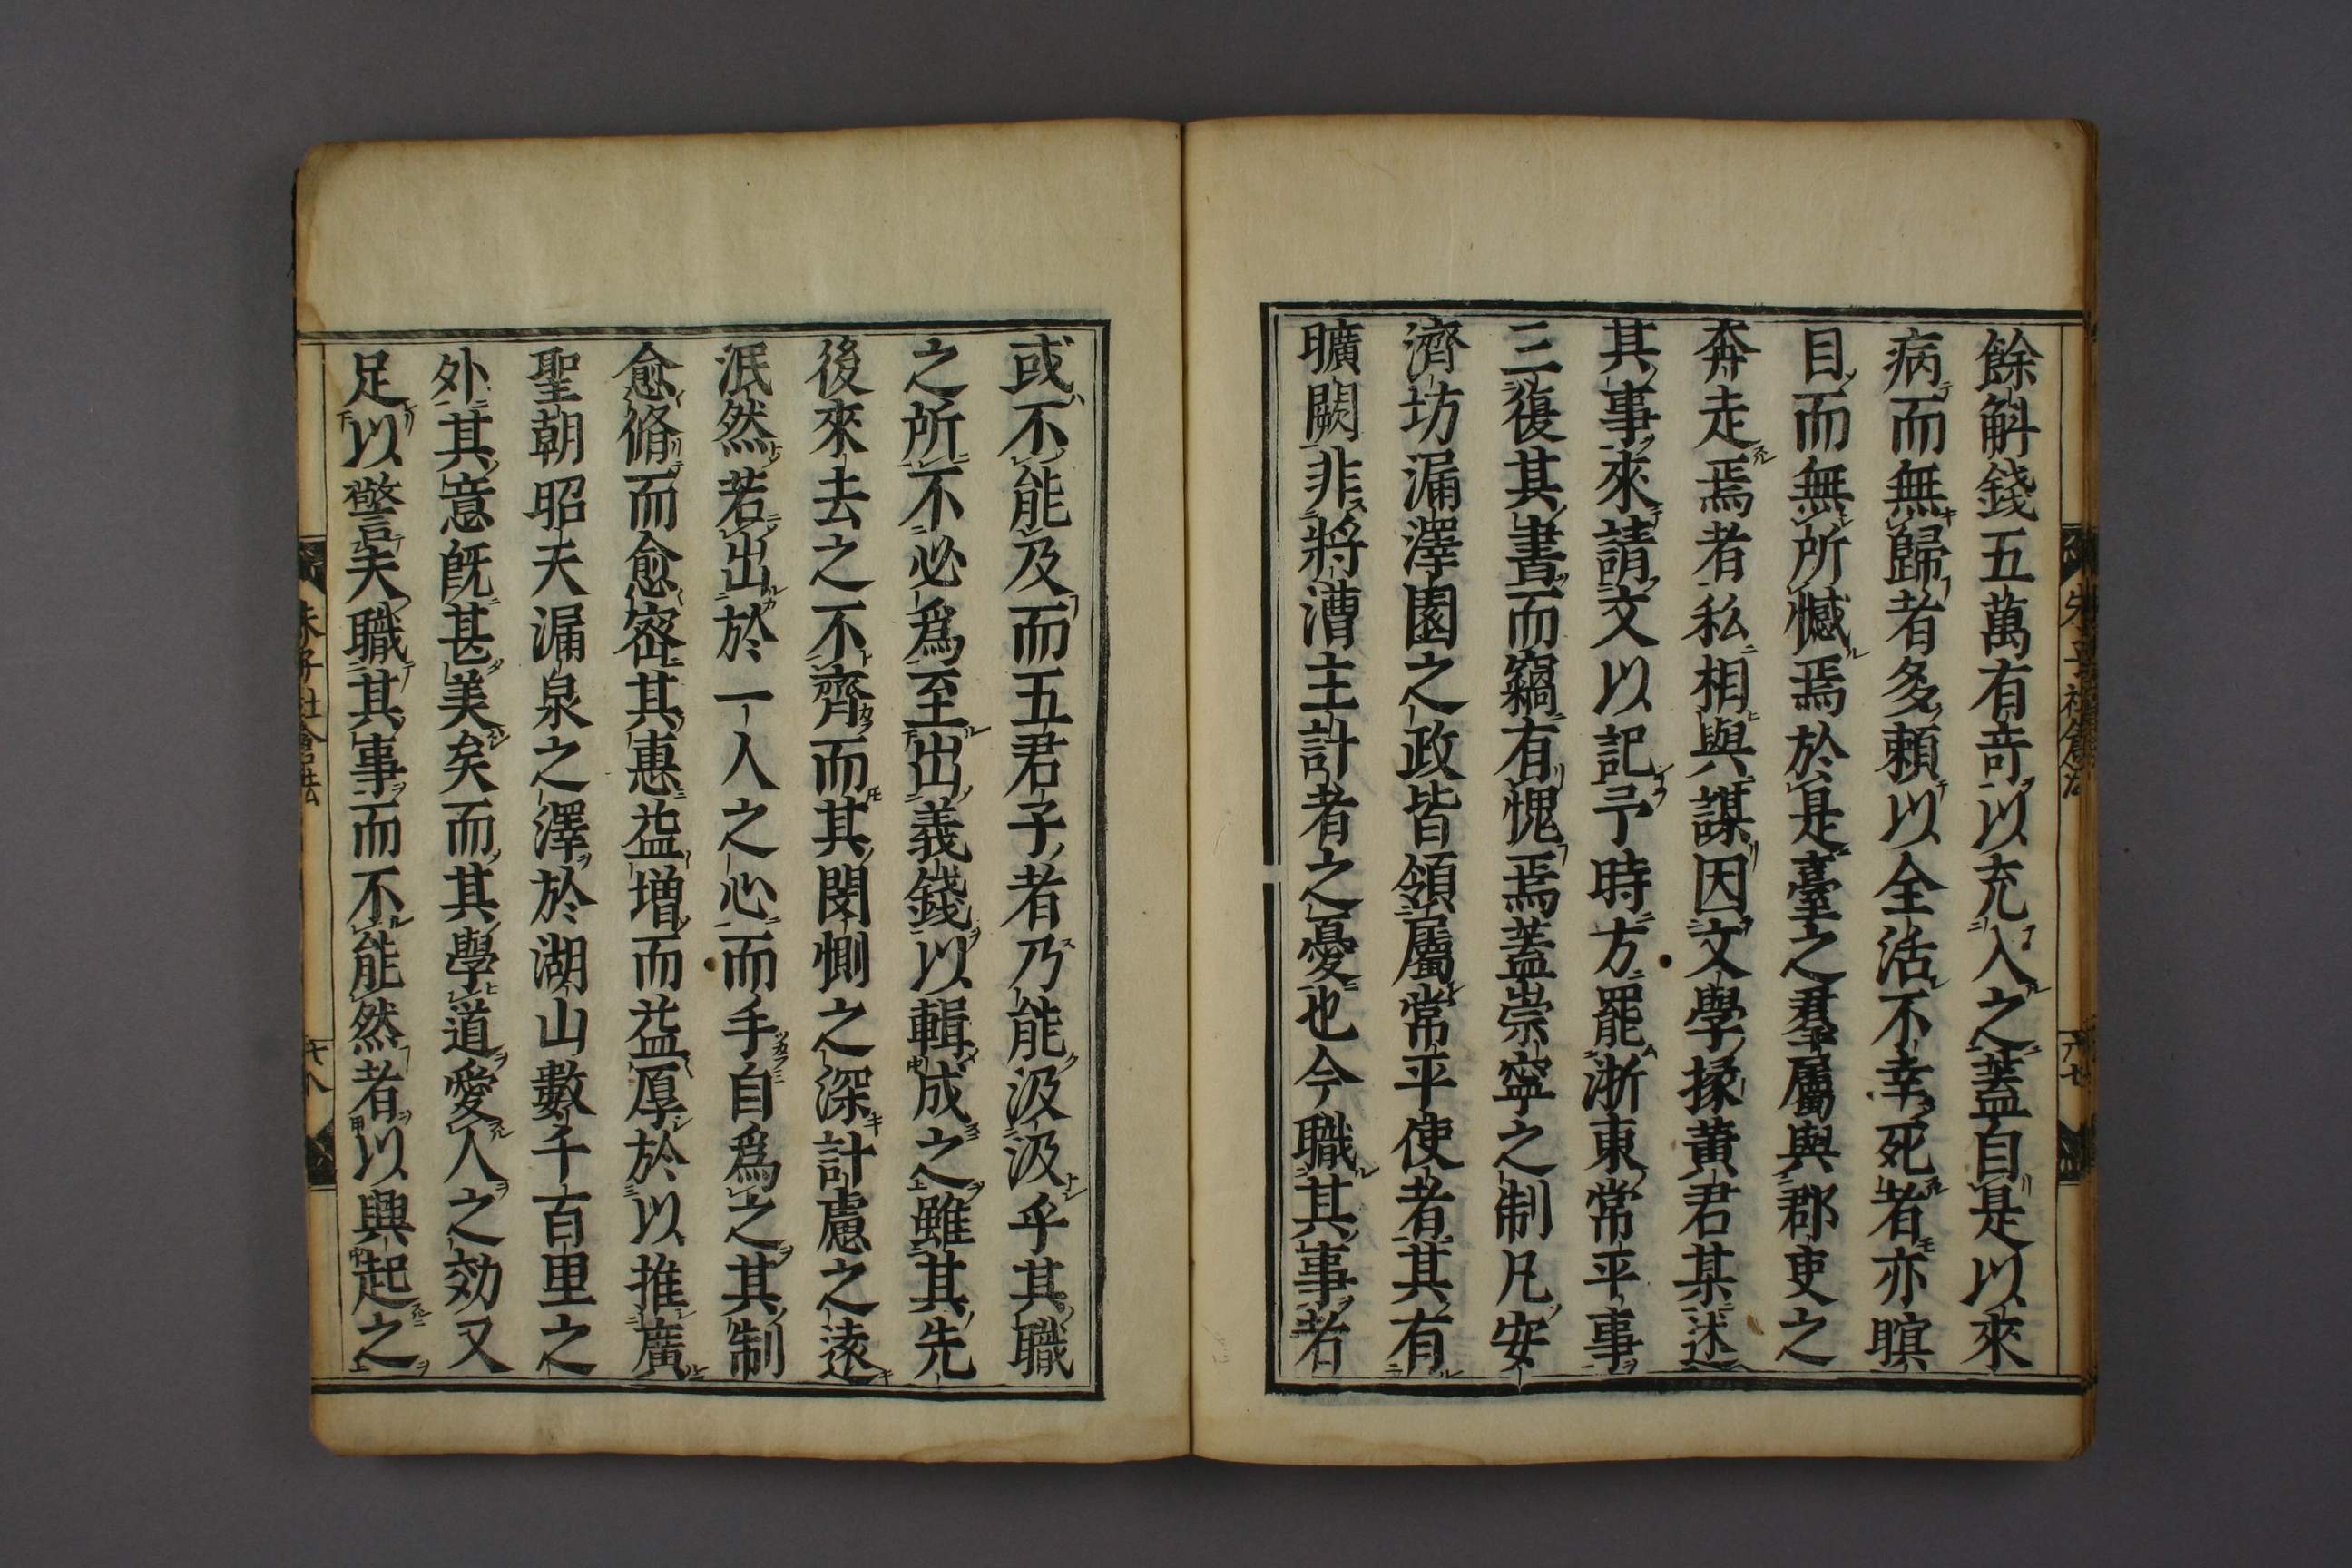 餘斛錢五萬有竒以充入之蓋自是以來
病而無歸者多頼以全活不幸死者亦瞑
目而無所憾焉於是臺之羣屬與郡吏之
奔走焉者私相與謀因文學掾黄君某述
其事來請文以記予時方罷浙東常平事
三復其書而竊有愧焉蓋崇寧之制凡安
濟坊漏澤園之政皆領屬常平使者其有
曠闕非將漕主計者之憂也今職其事者
或不能及而五君子者乃能汲汲乎其職
之所不必爲至出義錢以輯成之雖其先
後來去之不齊而其閔惻之深計慮之遠
泯然若出於一人之心而手自爲之其制
愈脩而愈宻其惠益増而益厚於以推廣
聖朝昭天漏泉之澤於湖山數千百里之
外其意既甚美矣而其學道愛人之効又
足以警夫職其事而不能然者以興起之
朱子社倉法